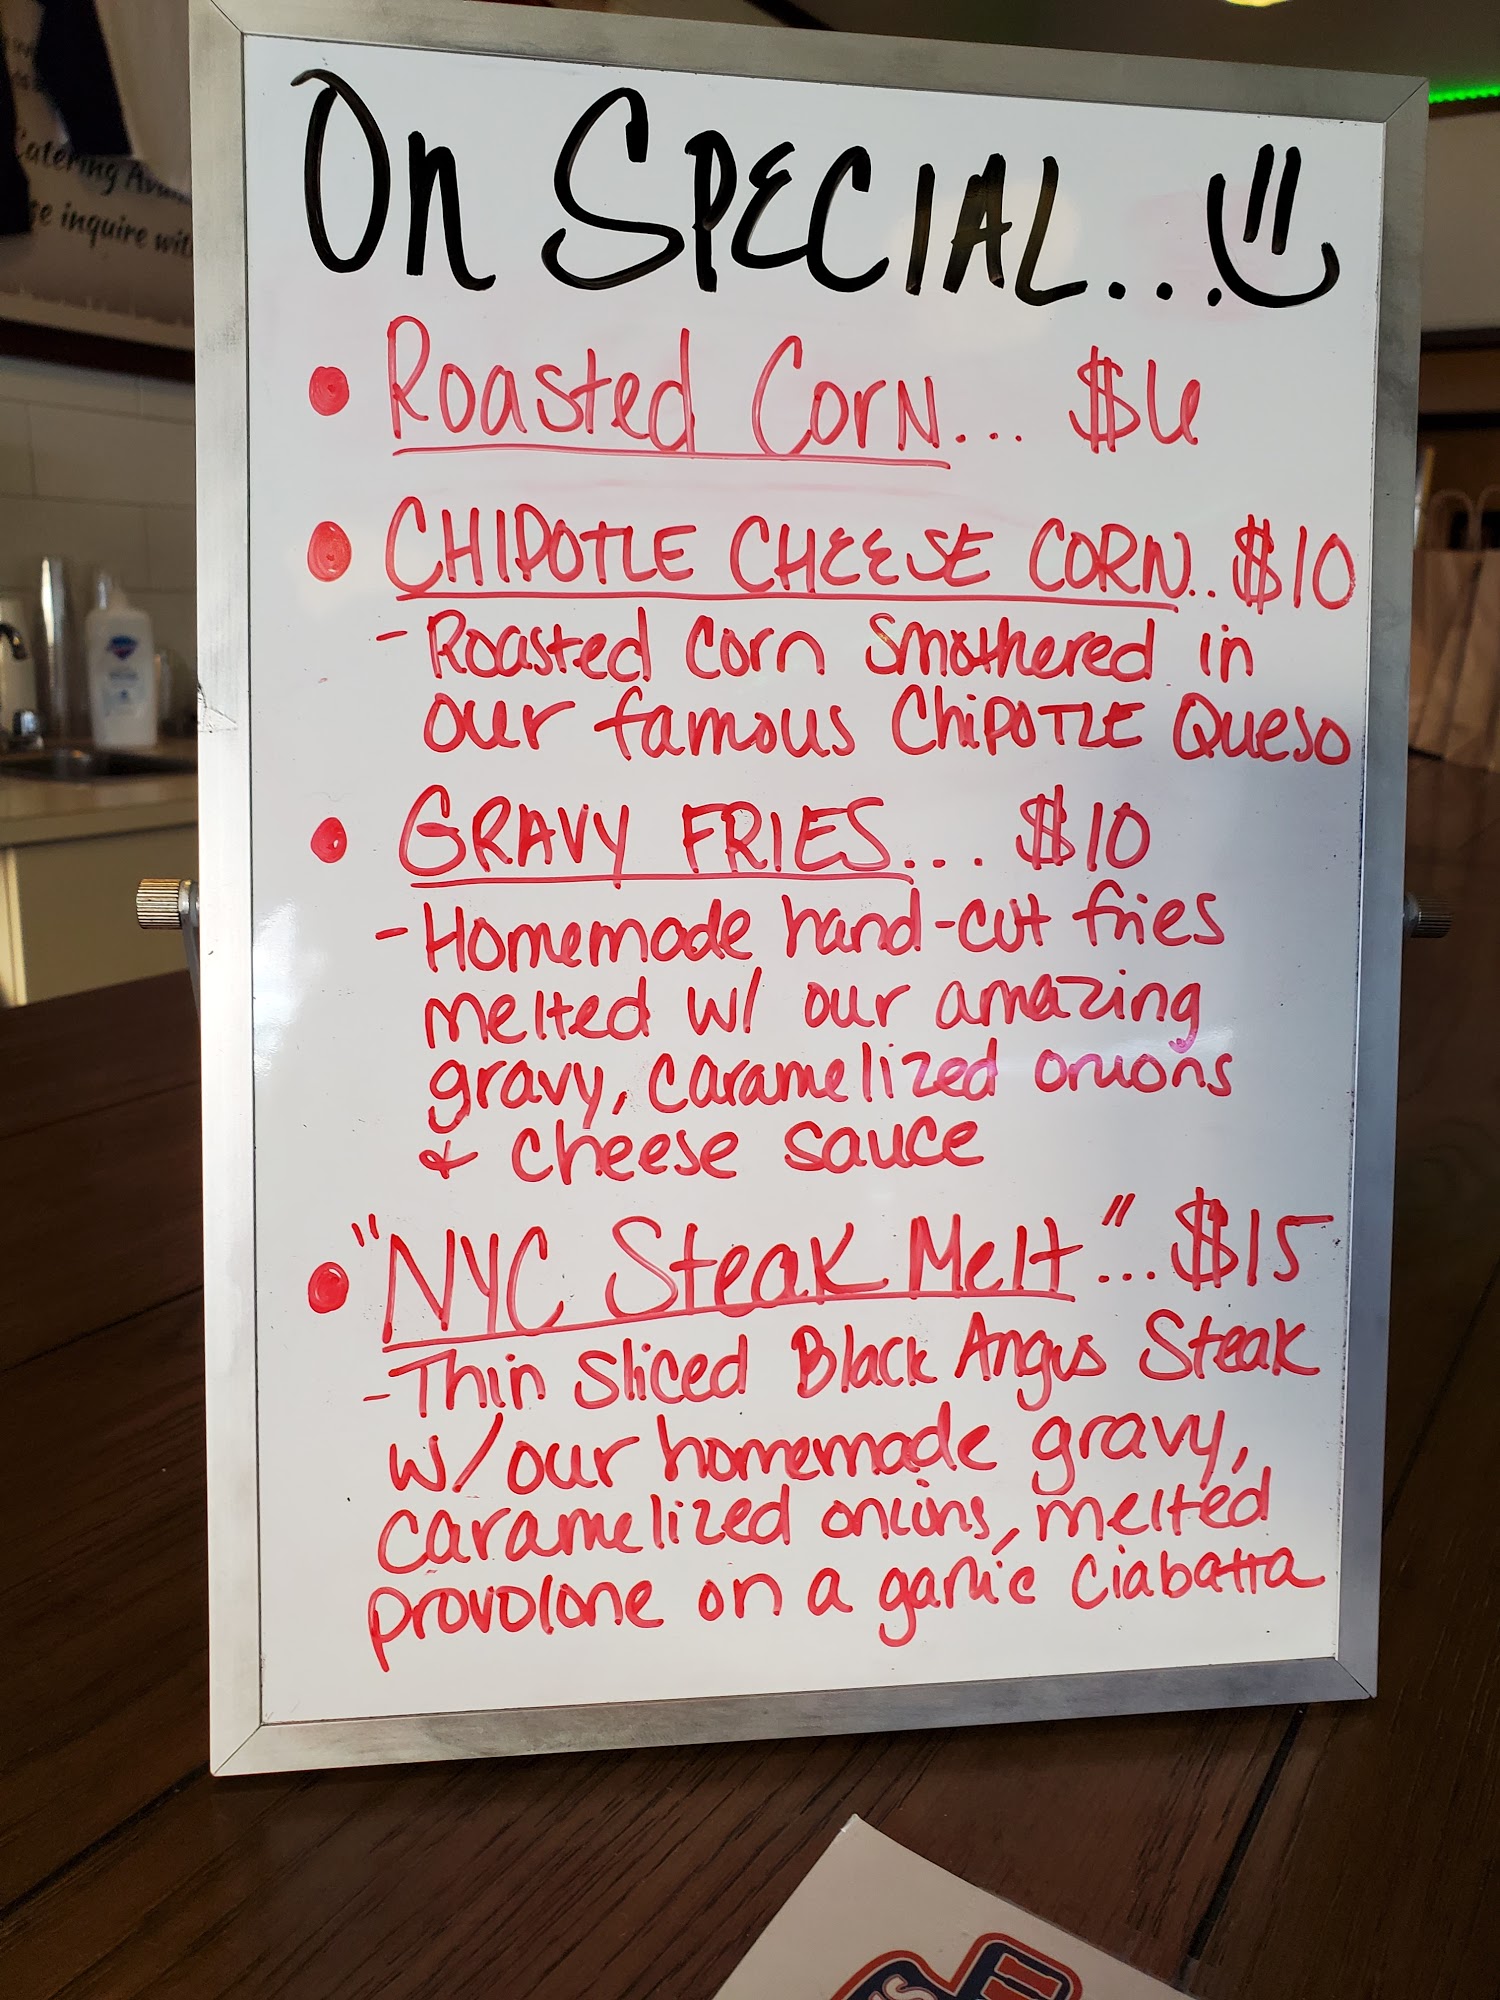 On SPECIAL...
• Roasted Corn... $6
• CHIPOTLE CHEESE CORN.. $10
- Roasted Corn Smothered in
our famous ChiPOTLE Queso
• GRAVY FRIES... $10
- Homemade hand-cut fries
melted w/ our amazing
gravy, caramelized onions
& cheese sauce
• "NYC Steak Melt"... $15
- Thin Sliced Black Angus Steak
w/our homemade gravy,
caramelized onions, melted
provolone on a garlic Ciabatta
Catering
inquire